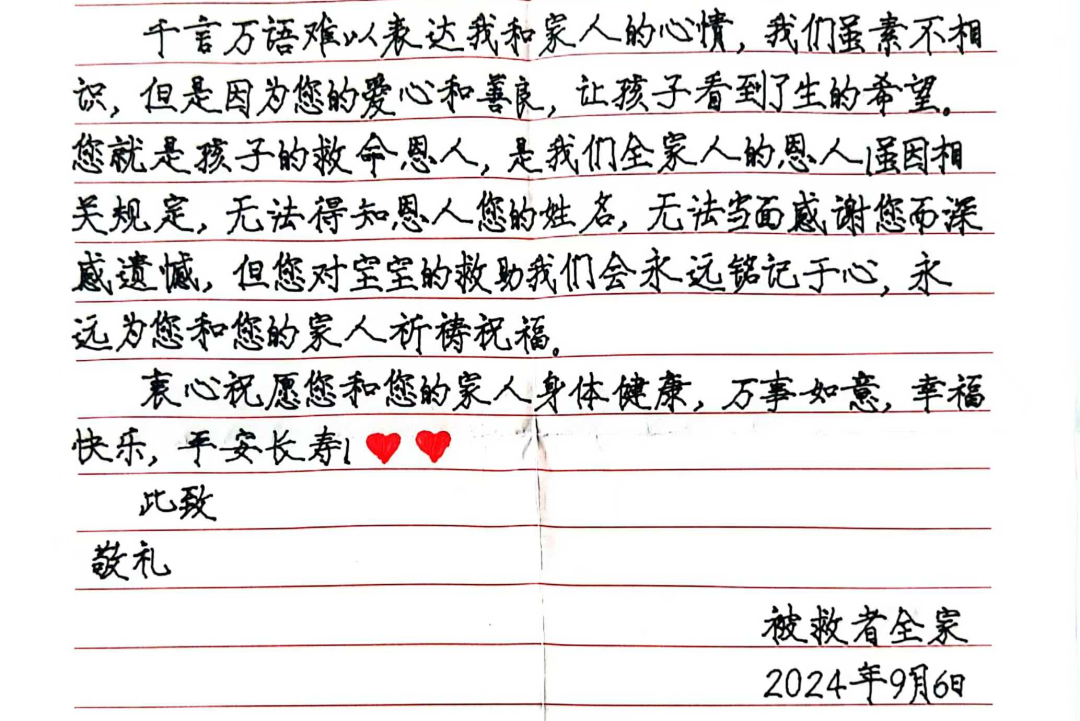 千言万语难以表达我和家人的心情，我们虽素不相
识，但是因为您的爱心和善良，让孩子看到了生的希望。
您就是孩子的救命恩人，是我们全家人的恩人！虽因相
关规定，无法得知恩人您的姓名，无法当面感谢您而深
感遗憾，但您对空空的救助我们会永远铭记于心，永
远为您和您的家人祈祷祝福。
衷心祝愿您和您的家人身体健康，万事如意，幸福
快乐，平安长寿！
此致
敬礼
被救者全家
2024年9月6日